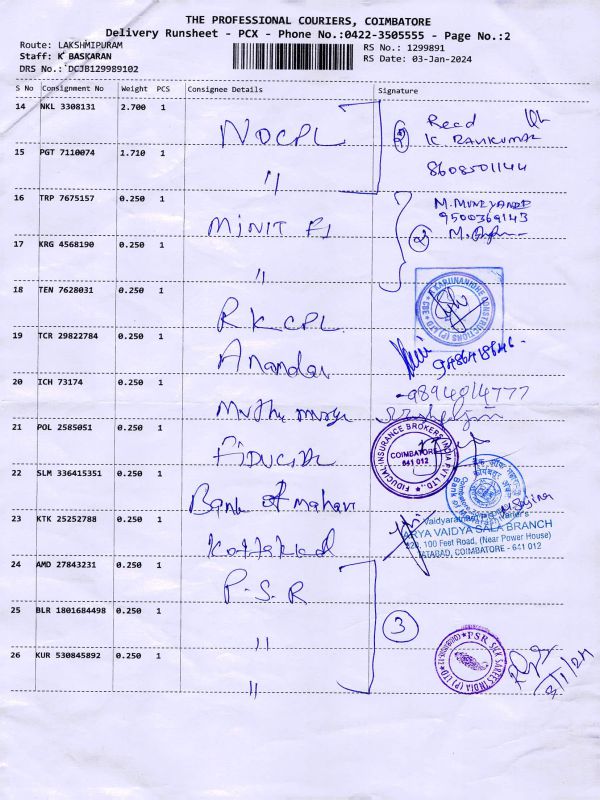 THE PROFESSIONAL COURIERS, COIMBATORE
Delivery Runsheet - PCX - Phone No.:0422-3505555 - Page No.:2
Route: LAKSHMIPURAM
Staff: K BASKARAN
DRS No.: DCJB129989102
RS No.: 1299891
RS Date: 03-Jan-2024
S No Consignment No Weight PCS Consignee Details Signature
14 NKL 3308131 2.700 1 NOCPL 2 Recd
K RAVIKUMAR
15 PGT 7110074 1.710 1 " 8608501144
16 TRP 7675157 0.250 1 MINIT FI 2
9500369143
17 KRG 4568190 0.250 1 "
18 TEN 7628031 0.250 1 RKCPL
KARUNANIDHE CONSTRUCTIONS (P) LTD CBE
19 TCR 29822784 0.250 1 Anandan
20 ICH 73174 0.250 1 Muthu 9894814777
21 POL 2585051 0.250 1 FIDUCIAL
FIDUCIAL INSURANCE BROKERS INDIA PVT LTD.
COIMBATORE
641 012
22 SLM 336415351 0.250 1 Bank of mahar
23 KTK 25252788 0.250 1 Kottakkal
Vaidyaratnam
ARYA VAIDYA SALA BRANCH
100 Feet Road, (Near Power House)
TATABAD, COIMBATORE - 641 012
24 AMD 27843231 0.250 1 P.S.R
25 BLR 1801684498 0.250 1 " 3
26 KUR 530845892 0.250 1 "
PSR SILK SAREES INDIA (P) LTD
3/1/24